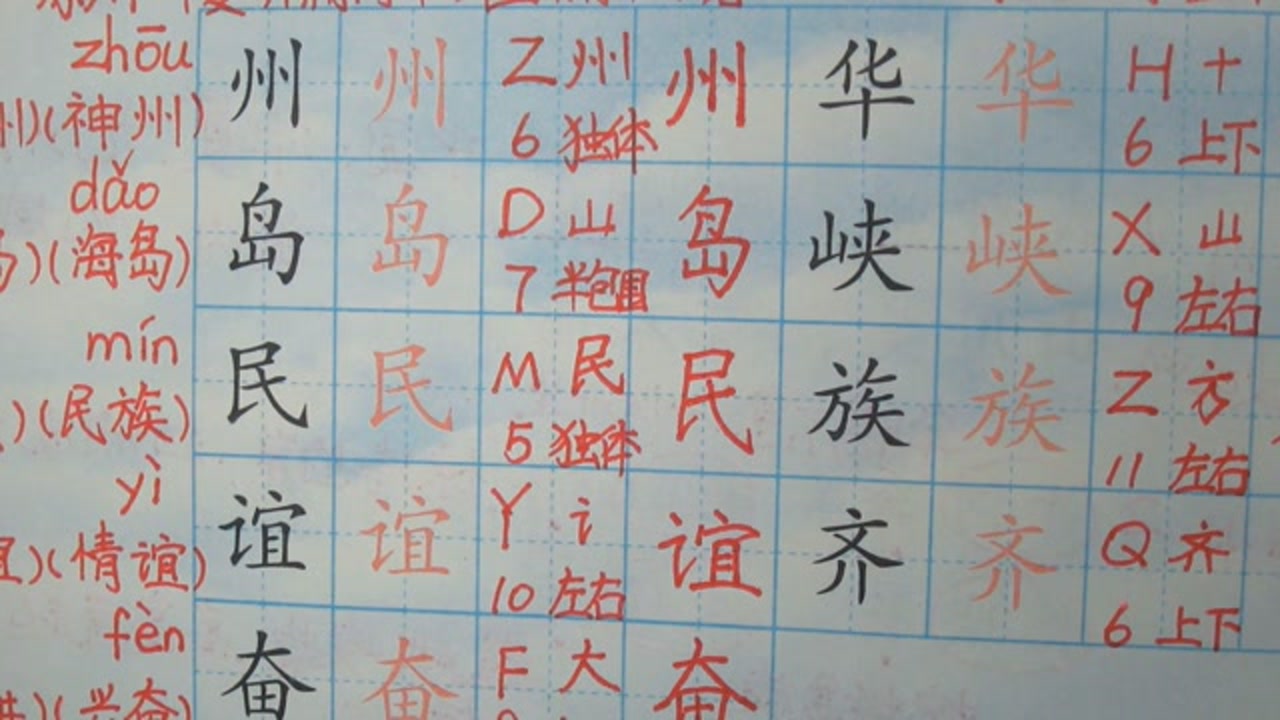 zhōu 州 州 Z 州 州 华 华 H 十
州)(神州) 6 独体 6 上下
dǎo 岛 岛 D 山 岛 峡 峡 X 山
岛)(海岛) 7 半包围 9 左右
mín 民 民 M 民 民 族 族 Z 方
)(民族) 5 独体 11 左右
yì 谊 谊 Y 讠 谊 齐 齐 Q 齐
谊)(情谊) 10 左右 6 上下
fèn 奋 奋 F 大 奋
)(兴奋)